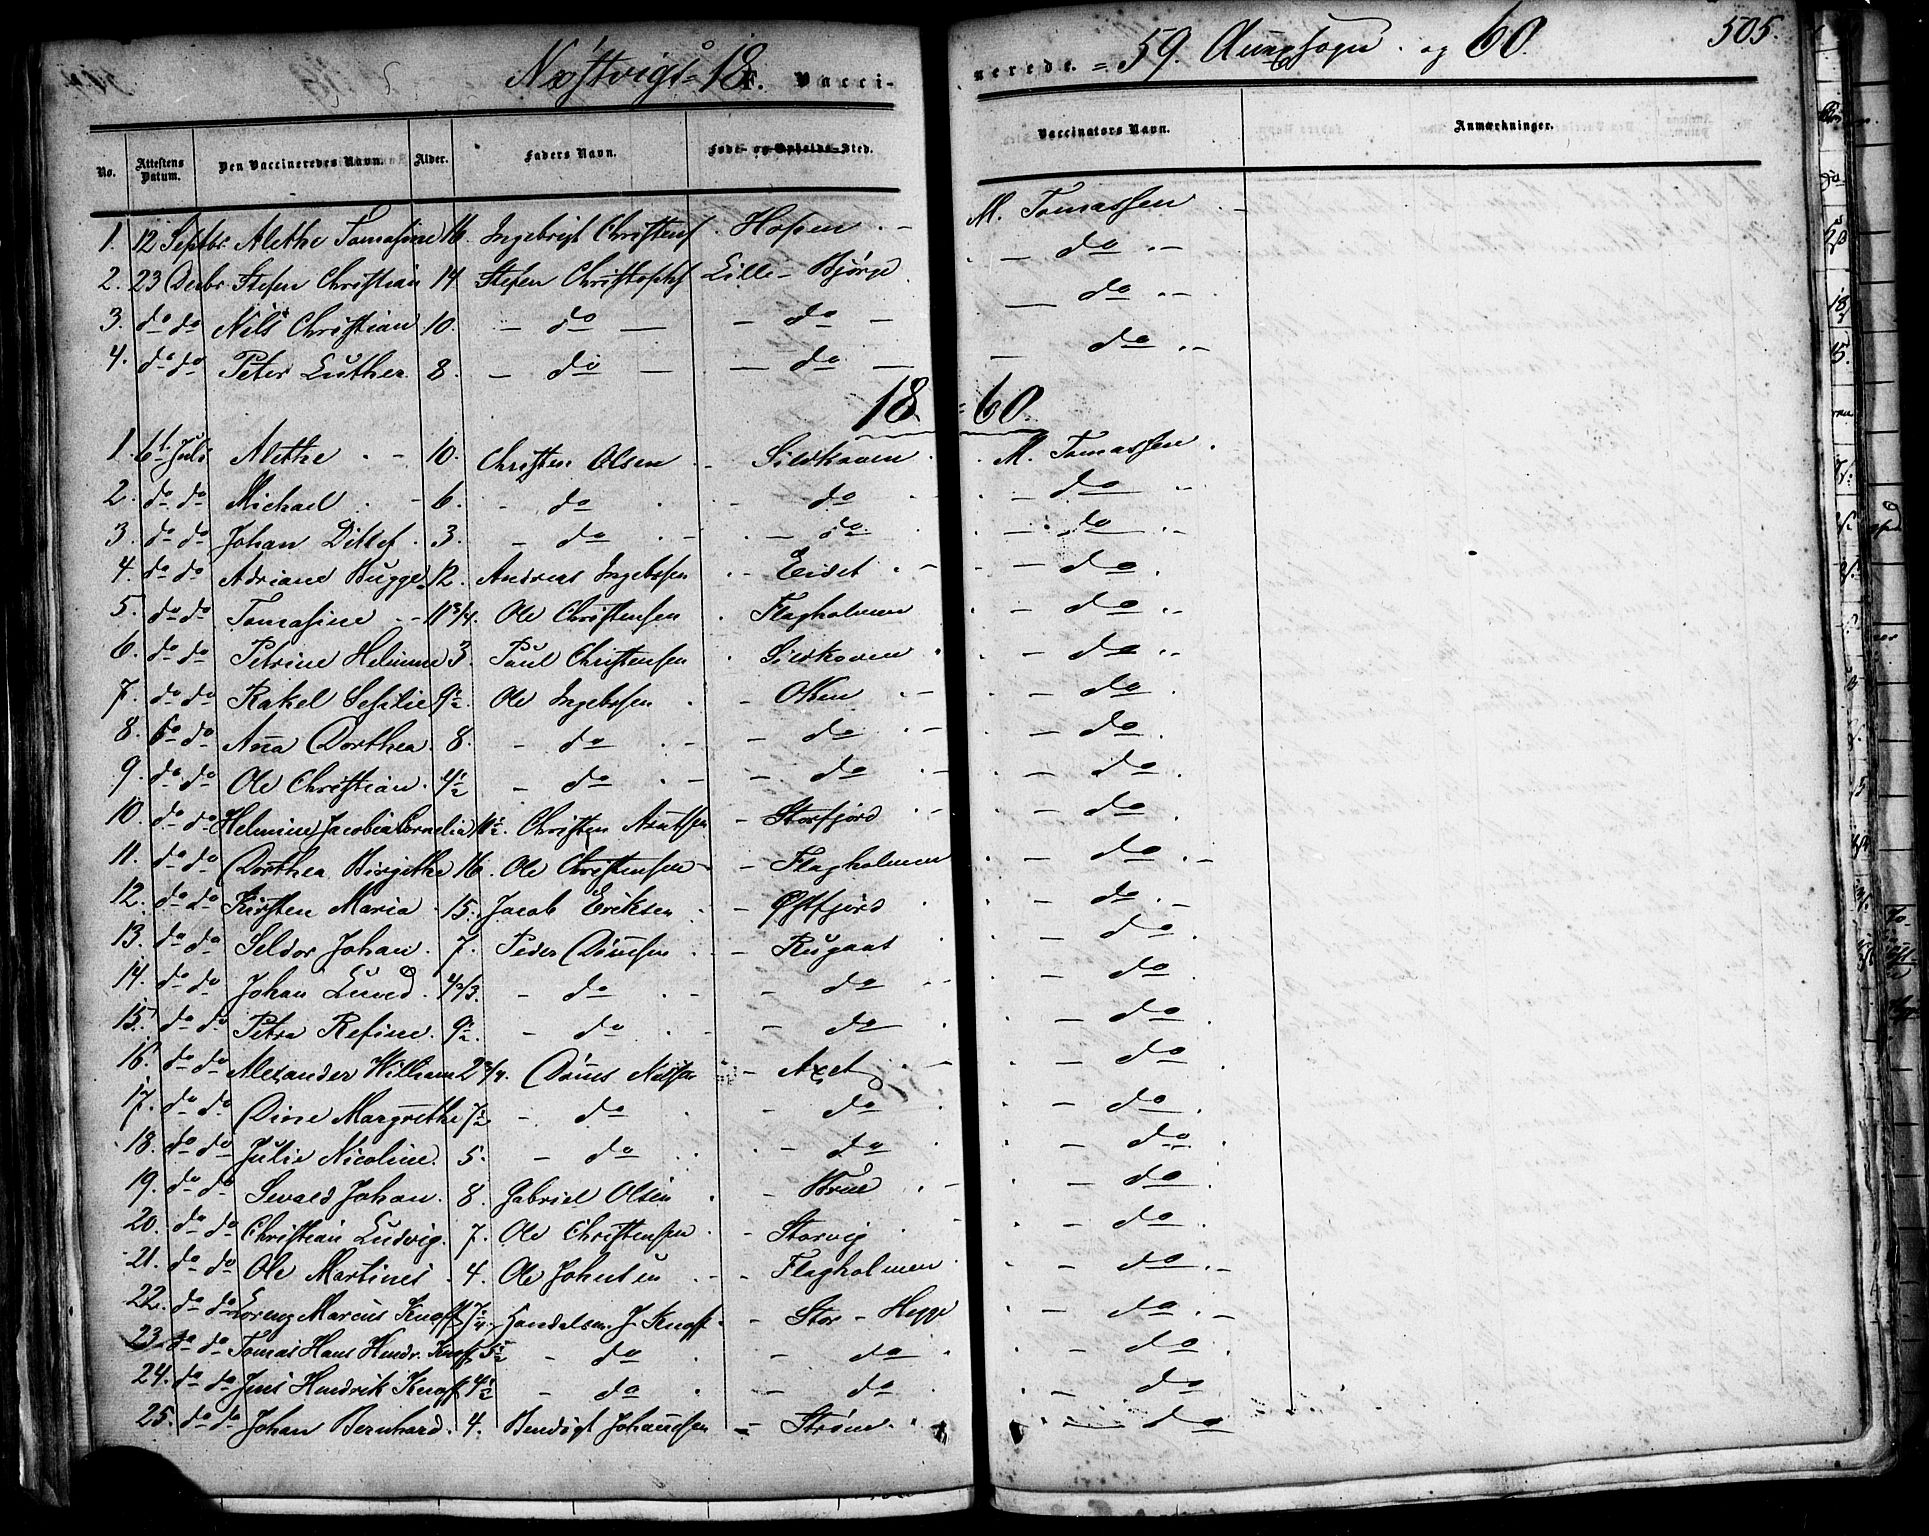 Næstvigs 18 Vaccinerede 59. Annexsogn og 60. 505.
No. Attestens Datum. Den Vaccineredes Navn. Alder. Faders Navn. Føde- og Opholds-Sted. Vaccinators Navn. Anmærkninger.
1. 12 Septbr. Alethe Tomasine 16. Ingebrigt Christens. Hosen M. Tomassen
2. 23 Decbr. Stefen Christian 14 Stefen Christophs Lille-Bjørge do
3. do do Nils Christian 10. do do do
4. do do Peter Luther 8. do do do
18 60.
1. 6t Juli Alethe 10. Christen Olsen Sildhaven M. Tomassen
2. do do Michael 6. do do do
3. do do Johan Ditlef 3. do do do
4. do do Adriane Bugge 12. Andreas Ingebrsen Eidet do
5. do do Tomasine 11 3/4. Ole Christensen Flagholmen do
6. do do Petrine Helmine 3 Paul Christensen Sildhaven do
7. do do Rakel Sesilie 9½. Ole Ingebrsen do
8. do do Anna Dorthea 8. do do do
9. do do Ole Christian 4½ do do do
10. do do Helmine Jacobia Cornelia 11½. Christen Knutsen Storfjord do
11. do do Dorthea Birgithe 16. Ole Christensen Flagholmen do
12. do do Kirsten Maria 15. Jacob Eriksen Østfjord do
13. do do Seldor Johan 7. Peder Dønsen Rugaas do
14. do do Johan Lund 4 2/3. do do do
15. do do Petra Refine 9½. do do do
16. do do Alexander William 2 3/4. Dønes Nilsen do
17. do do Dine Margrethe 7½ do do do
18. do do Julie Nicoline 5. do do do
19. do do Sevald Johan 8. Gabriel Olsen do
20. do do Christian Ludvig 7. Ole Christensen Storvig do
21. do do Ole Martines 4. Ole Johnsen Flagholmen do
22. do do Lorenz Marcus Knoff 7 Handelsm. J Knoff Stor-Hegge do
23. do do Tomas Hans Hendr. Knoff 5½ do do do
24. do do Jens Hendrik Knoff 4½ do do do
25. do do Johan Bernhard 4. Bendigt Johansen Strøm do